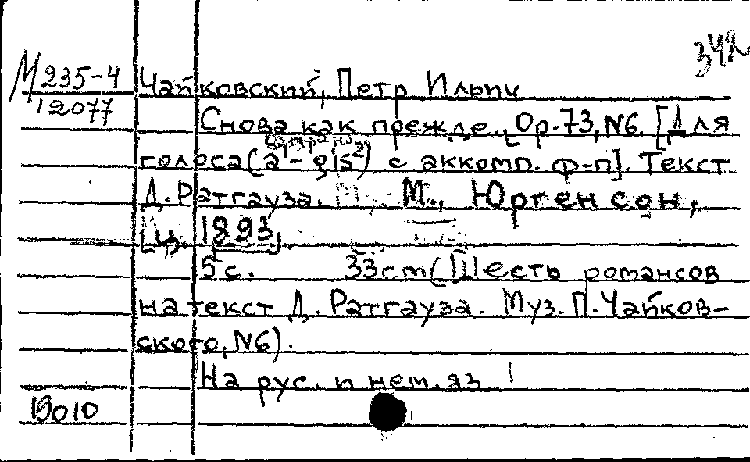 342
М 235-4
12077
Чайковский, Петр Ильич
Снова как прежде. Ор. 73, N6. [Для
голоса (a¹ - gis²) с аккомп. ф-п]. Текст
Д. Ратгауза. М., Юргенсон,
[ц. 1893].
5 с. 33 cm (Шесть романсов
на текст Д. Ратгауза. Муз. П. Чайков-
ского, N6).
На рус. и нем. яз